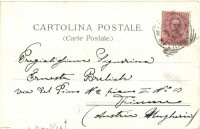 CARTOLINA POSTALE.
(Carte Postale)
Pregiatissima Signorina
Ernesta Brelich
via del Pino No 2 piano II No 10
Fiume
(Austria Ungheria)